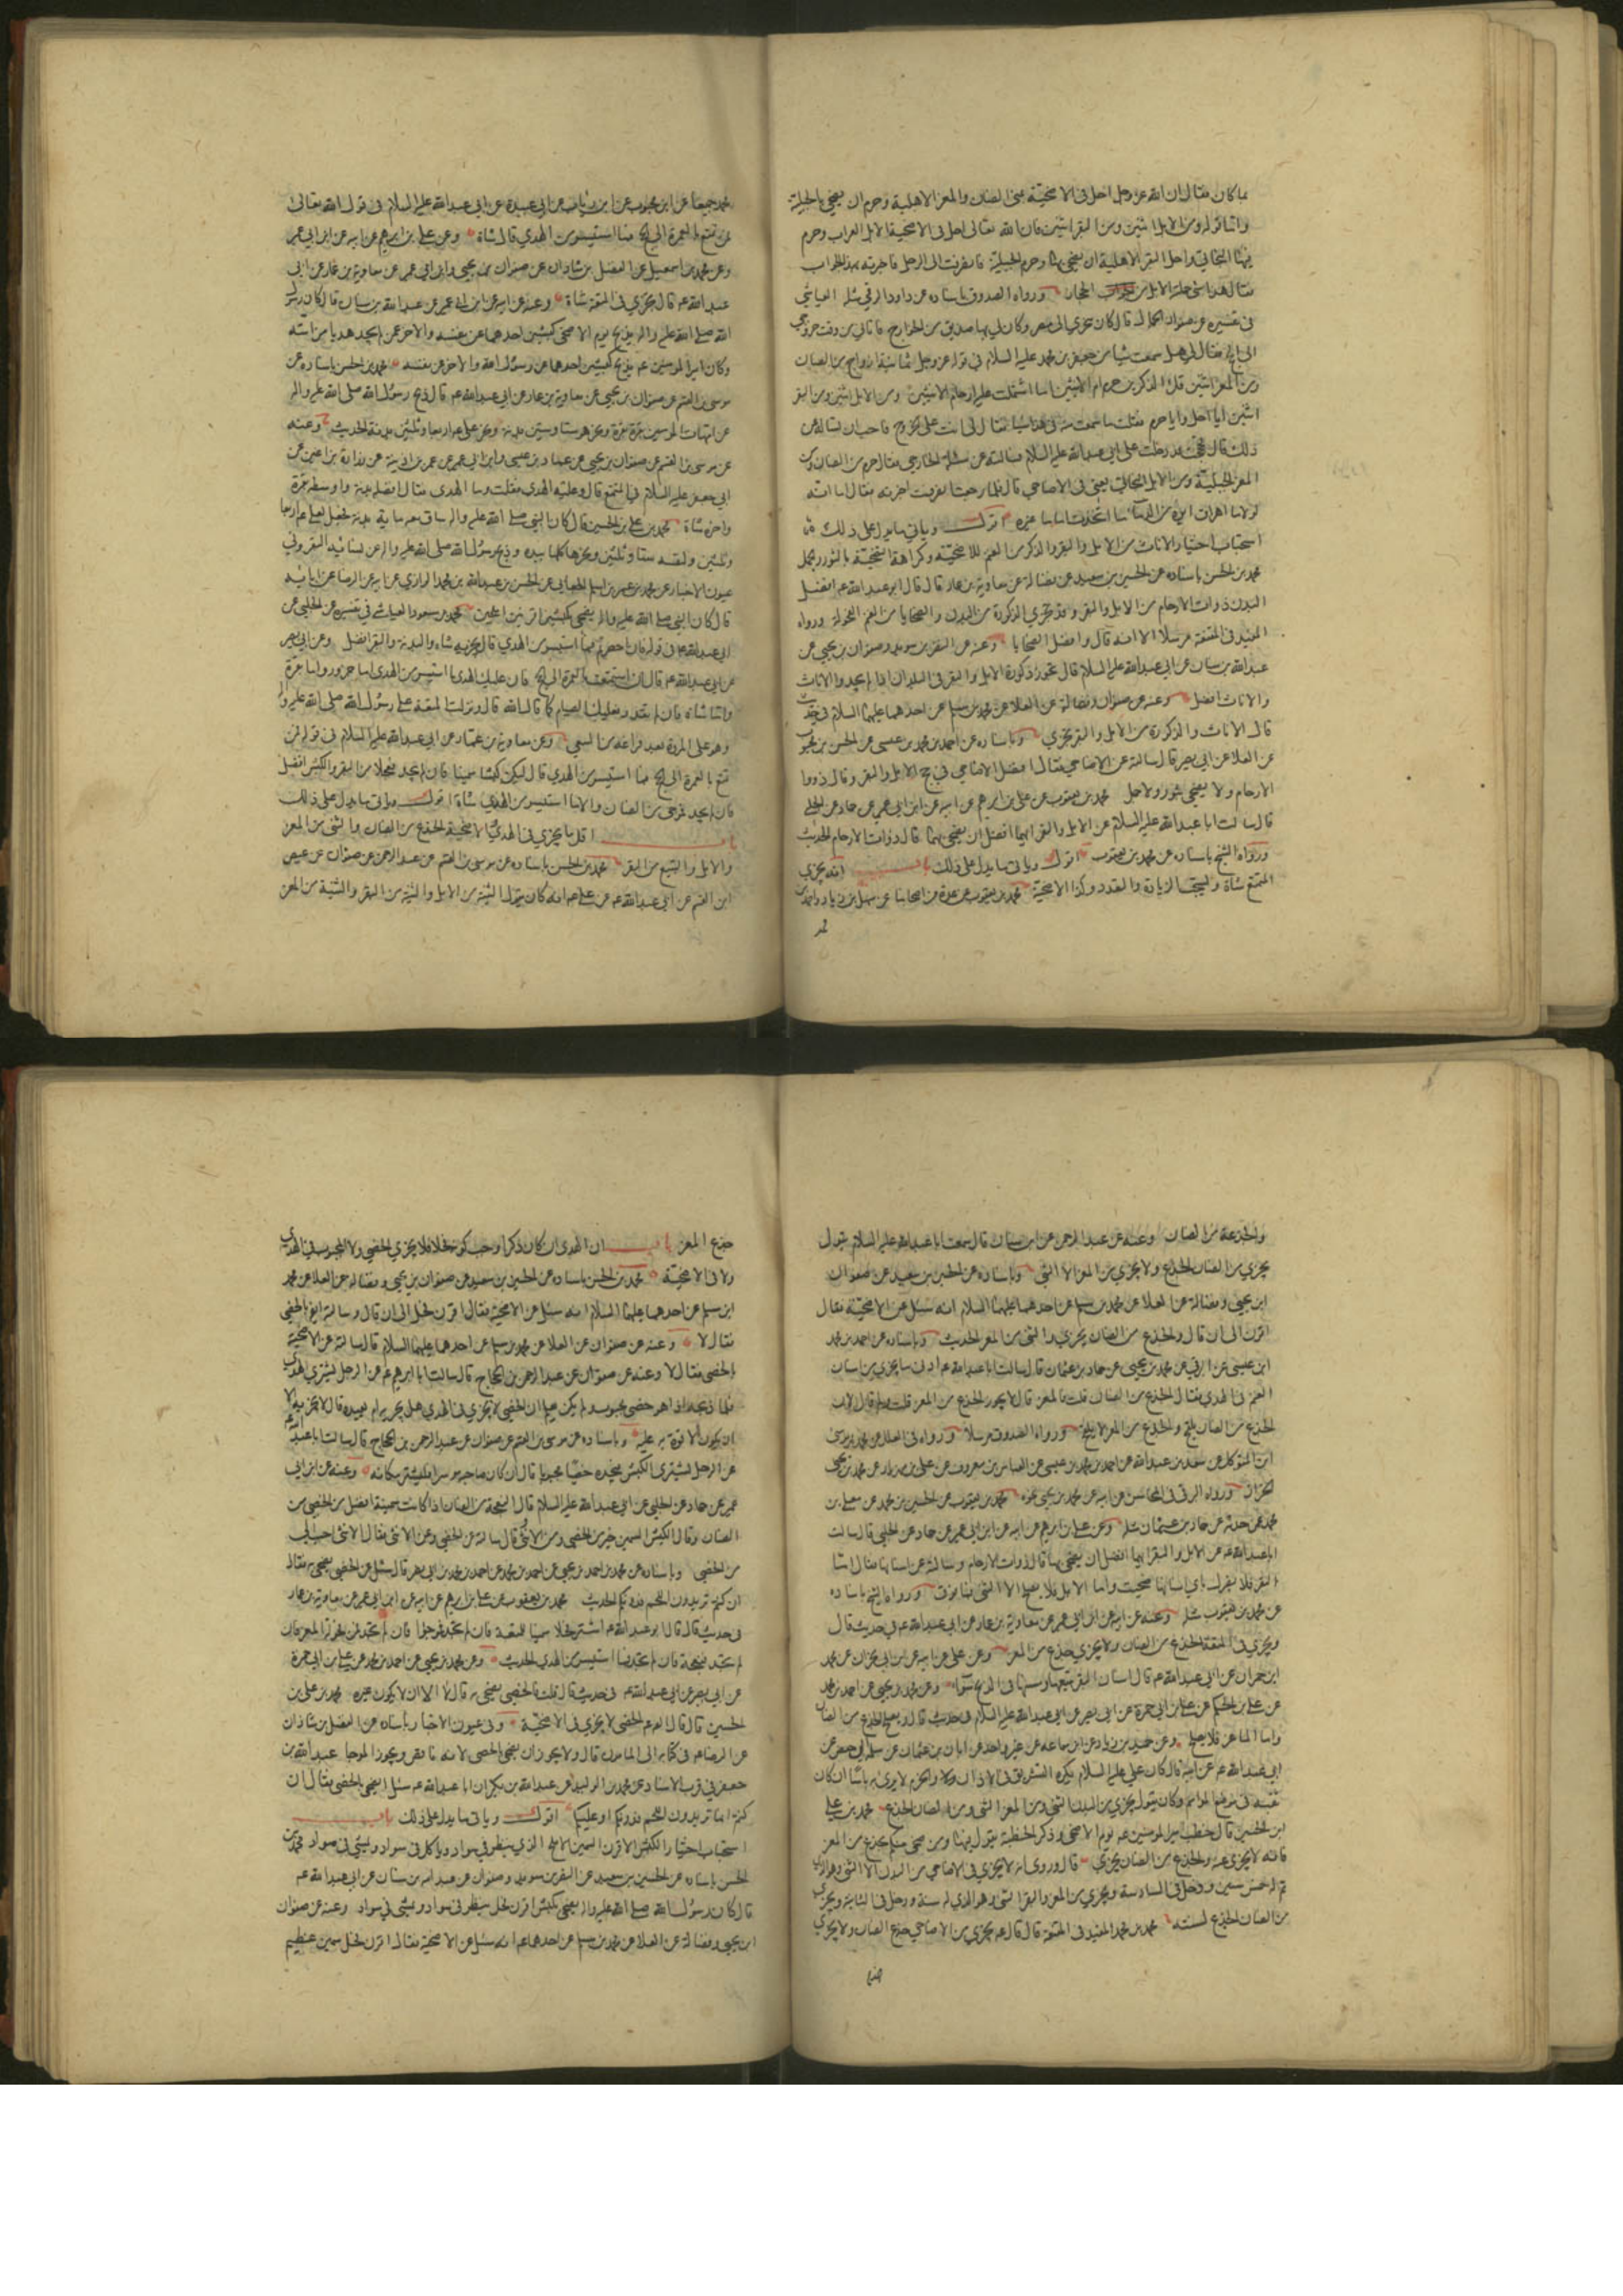 بما كان فقال ان الله عز وجل احل في الاضحية بمنى الضان والمعز الاهلية وحرم ان يضحي بالجبلية
واما قوله ومن الابل اثنين ومن البقر اثنين فان الله تعالى احل في الاضحية الابل العراب وحرم
فيها البخاتي واحل البقر الاهلية ان يضحي بها وحرم الجبلية فانصرفت الى الرجل فاخبرته بهذا الجواب
فقال هذا شي حملته الابل من الحجاز ورواه الصدوق باسناده عن داود الرقي مثله العياشي
في تفسيره عن صفوان الجمال قال كان متجري الى مصر وكان لي بها صديق من الخوارج فاتاني وقت خروجي
الى الحج فقال لي هل سمعت شيا من جعفر بن محمد عليه السلام في قوله عز وجل ثمانية ازواج من الضان
ومن المعز اثنين قل الذكرين حرم ام الانثيين اما اشتملت عليه ارحام الانثيين ومن الابل اثنين ومن البقر
اثنين ايا احل وايا حرم فقلت ما سمعت منه في هذا شيا فقال لي انت على الخروج فاحب ان تساله عن
ذلك قال فحججت فدخلت على ابي عبد الله عليه السلام فسالته عن مسئلة الخارجي فقال حرم من الضان ومن
المعز الجبلية ومن الابل البخاتي يعني في الاضاحي قال فلما رجعت انصرفت اخبرته فقال اما انه
لولا ما اهراق ابوه من الدماء ما اتخذت اماما غيره اقول وياتي ما يدل على ذلك
استحباب اختيار الاناث من الابل والبقر والذكر من الغنم للاضحية وكراهة التضحية بالثور والجمل
محمد بن الحسن باسناده عن الحسين بن سعيد عن فضالة عن معاوية بن عمار قال قال ابو عبد الله عم افضل
البدن ذوات الارحام من الابل والبقر وقد تجزي الذكورة من البدن والضحايا من الغنم الفحولة ورواه
المفيد في المقنعة مرسلا الا انه قال وافضل الضحايا وعنه عن النضر بن سويد وصفوان بن يحيى عن
عبد الله بن سنان عن ابي عبد الله عليه السلام قال تجوز ذكورة الابل والبقر في البلدان اذا لم يجدوا الاناث
والاناث افضل وعنه عن صفوان وفضالة عن العلا عن محمد بن مسلم عن احدهما عليهما السلام في حديث
قال الاناث والذكورة من الابل والبقر تجزي وباسناده عن احمد بن محمد بن عيسى عن الحسن بن محبوب
عن العلا عن ابي بصير قال سالته عن الاضاحي فقال افضل الاضاحي في الحج الابل والبقر وقال ذووا
الارحام ولا يضحي بثور ولا جمل محمد بن يعقوب عن علي بن ابرهيم عن ابيه عن ابن ابي عمير عن حماد عن الحلبي
قال سالت ابا عبد الله عليه السلام عن الابل والبقر ايهما افضل ان يضحي بهما قال ذوات الارحام الحديث
ورواه الشيخ باسناده عن محمد بن يعقوب اقول وياتي ما يدل على ذلك باب انه يجزي
المتمتع شاة ويستحب الزيادة والتعدد وكذا الاضحية محمد بن يعقوب عن عدة من اصحابنا عن سهل بن زياد واحمد بن
محمد جميعا عن ابن محبوب عن ابن رئاب عن ابي عبيدة عن ابي عبد الله عليه السلام في قول الله تعالى
فمن تمتع بالعمرة الى الحج فما استيسر من الهدي قال شاة وعن علي بن ابرهيم عن ابيه عن ابن ابي عمير
وعن محمد بن اسمعيل عن الفضل بن شاذان عن صفوان بن يحيى وابن ابي عمير عن معاوية بن عمار عن ابي
عبد الله عم قال يجزي في المتعة شاة وعنه عن ابيه عن ابن ابي عمير عن عبد الله بن سنان قال كان رسول
الله صلى الله عليه واله يذبح يوم الاضحى كبشين احدهما عن نفسه والاخر عمن لم يجد هديا من امته
وكان امير المومنين عم يذبح كبشين احدهما عن رسول الله والاخر عن نفسه محمد بن الحسن باسناده عن
موسى بن القسم عن صفوان بن يحيى عن معاوية بن عمار عن ابي عبد الله عم قال ذبح رسول الله صلى الله عليه واله
عن امهات المومنين بقرة بقرة ونحر هو ستا وستين بدنة ونحر علي اربعا وثلثين بدنة الحديث وعنه
عن موسى بن القسم عن صفوان بن يحيى عن حماد بن عيسى وابن ابي عمير عن عمر بن اذينة عن زرارة بن اعين عن
ابي جعفر عليه السلام في المتمتع قال وعليه الهدي فقلت وما الهدي فقال افضله بدنة واوسطه بقرة
واخره شاة محمد بن علي بن الحسين قال كان النبي صلى الله عليه واله ساق معه ماية بدنة فجعل لعلي عم اربعا
وثلثين ولنفسه ستا وثلثين ونحرها كلها بيده وذبح رسول الله صلى الله عليه واله عن نسائه البقر وفي
عيون الاخبار عن محمد بن عمر بن اسلم الجعابي عن الحسن بن عبد الله بن محمد الرازي عن ابيه عن الرضا عن ابائه
قال كان النبي صلى الله عليه واله يضحي بكبشين اقرنين املحين محمد بن مسعود العياشي في تفسيره عن الحلبي عن
ابي عبد الله عم في قوله فان احصرتم فما استيسر من الهدي قال يجزيه شاة والبدنة والبقر افضل وعن ابي بصير
عن ابي عبد الله عم قال ان استمتعت بالعمرة الى الحج فان عليك الهدي ما استيسر من الهدي اما جزور واما بقرة
واما شاة فان لم تقدر فعليك الصيام كما قال الله قال ونزلت المتعة على رسول الله صلى الله عليه واله
وهو على المروة بعد فراغه من السعي وعن معاوية بن عمار عن ابي عبد الله عليه السلام في قوله فمن
تمتع بالعمرة الى الحج فما استيسر من الهدي قال ليكن كبشا سمينا فان لم يجد فعجلا من البقر والكبش افضل
فان لم يجد فموجى من الضان والا ما استيسر من الهدي شاة اقول وياتي ما يدل على ذلك
باب اقل ما يجزي في الهدي والاضحية الجذع من الضان والثني من المعز
والابل والتبيع من البقر محمد بن الحسن باسناده عن موسى بن القسم عن عبد الرحمن عن صفوان عن عيص
ابن القسم عن ابي عبد الله عم عن علي عم انه كان يقول الثنية من الابل والثنية من البقر والثنية من المعز
والجذعة من الضان وعنه عن عبد الرحمن عن ابن سنان قال سمعت ابا عبد الله عليه السلام يقول
يجزي من الضان الجذع ولا يجزي من المعز الا الثني وباسناده عن الحسين بن سعيد عن صفوان
ابن يحيى وفضالة عن العلا عن محمد بن مسلم عن احدهما عليهما السلام انه سئل عن الاضحية فقال
اقرن الى ان قال والجذع من الضان يجزي والثني من المعز الحديث وباسناده عن احمد بن محمد
ابن عيسى عن البرقي عن محمد بن يحيى عن حماد بن عثمان قال سالت ابا عبد الله عم ادنى ما يجزي من اسنان
الغنم في الهدي فقال الجذع من الضان قلت فالمعز قال لا يجوز الجذع من المعز قلت ولم قال لان
الجذع من الضان يلقح والجذع من المعز لا يلقح ورواه الصدوق مرسلا ورواه في العلل عن محمد بن موسى
ابن المتوكل عن سعد بن عبد الله عن احمد بن محمد بن عيسى عن العباس بن معروف عن علي بن مهزيار عن محمد بن يحيى
الخزاز ورواه البرقي في المحاسن عن ابيه عن محمد بن يحيى نحوه محمد بن يعقوب عن الحسين بن محمد عن معلى بن
محمد عمن حدثه عن حماد بن عثمان مثله وعن علي بن ابرهيم عن ابيه عن ابن ابي عمير عن حماد عن الحلبي قال سالت
ابا عبد الله عم عن الابل والبقر ايهما افضل ان يضحي بها قال ذوات الارحام وسالته عن اسنانها فقال اما
البقر فلا يضرك باي اسنانها ضحيت واما الابل فلا يصلح الا الثني فما فوق ورواه الشيخ باسناده
عن محمد بن يعقوب مثله وعنه عن ابيه عن ابن ابي عمير عن معاوية بن عمار عن ابي عبد الله عم في حديث قال
ويجزي في المتعة الجذع من الضان ولا يجزي جذع من المعز وعن علي عن ابيه عن ابن ابي نجران عن محمد
ابن حمران عن ابي عبد الله عم قال اسنان البقر تبيعها ومسنها في الذبح سواء وعن محمد بن يحيى عن احمد بن محمد
عن علي بن الحكم عن علي بن ابي حمزة عن ابي بصير عن ابي عبد الله عليه السلام في حديث قال ويصلح الجذع من الضان
واما الماعز فلا يصلح وعن حميد بن زياد عن ابن سماعة عن غير واحد عن ابان بن عثمان عن سلمة ابي حفص عن
ابي عبد الله عم عن ابيه قال كان علي عليه السلام يكره التشريق في الاذان والخرم لا يرى به باسا ان كان
ثقب في موضع المواسم وكان يقول يجزي من البدن الثني ومن المعز الثني ومن الضان الجذع محمد بن علي
ابن الحسين قال خطب امير المومنين عم يوم الاضحى وذكر الخطبة يقول فيها ومن ضحى منكم بجذع من المعز
فانه لا يجزي عنه والجذع من الضان يجزي قال وروي انه لا يجزي في الاضاحي من البدن الا الثني وهو الذي
تم له خمس سنين ودخل في السادسة ويجزي من المعز والبقر الثني وهو الذي له سنة ودخل في الثانية ويجزي
من الضان الجذع لسنته محمد بن محمد المفيد في المقنعة قال قال عم يجزي من الاضاحي جذع الضان ولا يجزي
جذع المعز باب ان الهدي ان كان ذكرا وجب كونه فحلا فلا يجزي الخصي ولا المجبوب في الهدي
ولا في الاضحية محمد بن الحسن باسناده عن الحسين بن سعيد عن صفوان بن يحيى وفضالة عن العلا عن محمد
ابن مسلم عن احدهما عليهما السلام انه سئل عن الاضحية فقال اقرن فحل الى ان قال وسالته ايضحي بالخصي
فقال لا وعنه عن صفوان عن العلا عن محمد بن مسلم عن احدهما عليهما السلام قال سالته عن الاضحية
بالخصي فقال لا وعنه عن صفوان عن عبد الرحمن بن الحجاج قال سالت ابا ابرهيم عم عن الرجل يشتري الهدي
فلما ذبحه اذا هو خصي مجبوب ولم يكن يعلم ان الخصي لا يجزي في الهدي هل يجزيه ام يعيده قال لا يجزيه الا
ان يكون لا قوة به عليه وباسناده عن موسى بن القسم عن صفوان عن عبد الرحمن بن الحجاج قال سالت ابا عبد الله
عن الرجل يشتري الكبش فيجده خصيا مجبوبا قال ان كان صاحبه موسرا فليشتر مكانه وعنه عن ابن ابي
عمير عن حماد عن الحلبي عن ابي عبد الله عليه السلام قال النعجة من الضان اذا كانت سمينة افضل من الخصي من
الضان وقال الكبش السمين خير من الخصي ومن الانثى قال سالته عن الخصي وعن الانثى فقال الانثى احب الي
من الخصي وباسناده عن محمد بن احمد بن يحيى عن احمد بن محمد عن احمد بن محمد بن ابي نصر قال سئل عن الخصي يضحي به فقال
ان كنتم تريدون اللحم فدونكم الحديث محمد بن يعقوب عن علي بن ابرهيم عن ابيه عن ابن ابي عمير عن معاوية بن عمار
في حديث قال قال ابو عبد الله عم اشتر فحلا سمينا للمتعة فان لم تجد فموجوا فان لم تجد فمن فحولة المعز فان
لم تجد فنعجة فان لم تجد فما استيسر من الهدي الحديث وعن محمد بن يحيى عن احمد بن محمد عن علي بن ابي حمزة
عن ابي بصير عن ابي عبد الله عم في حديث قال قلت فالخصي يضحي به قال لا الا ان لا يكون غيره محمد بن علي بن
الحسين قال قال ابو عم الخصي لا يجزي في الاضحية وفي عيون الاخبار باسناده عن الفضل بن شاذان
عن الرضا عم في كتابه الى المامون قال ولا يجوز ان يضحي بالخصي لانه ناقص ويجوز الموجا عبد الله بن
جعفر في قرب الاسناد عن محمد بن الوليد عن عبد الله بن بكير ان ابا عبد الله عم سئل ايضحي بالخصي فقال ان
كنتم انما تريدون اللحم فدونكم او عليكم اقول وياتي ما يدل على ذلك باب
استحباب اختيار الكبش الاقرن السمين الاملح الذي ينظر في سواد وياكل في سواد ويمشي في سواد محمد بن
الحسن باسناده عن الحسين بن سعيد عن النضر بن سويد وصفوان عن عبد الله بن سنان عن ابي عبد الله عم
قال كان رسول الله صلى الله عليه واله يضحي بكبش اقرن فحل ينظر في سواد ويمشي في سواد وعنه عن صفوان
ابن يحيى وفضالة عن العلا عن محمد بن مسلم عن احدهما عم انه سئل عن الاضحية فقال اقرن فحل سمين عظيم